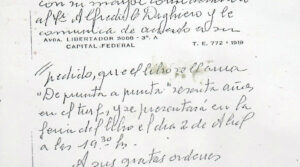 con su mayor consideración
al Sr. Alfredo Dighiero y le
comunica de acuerdo a su
AVDA. LIBERTADOR 3000 - 3º. A
CAPITAL FEDERAL
T. E. 772 - 1919
pedido, que el libro se llama
"De punta a punta" sesenta años
en el turf, y se presentará en la
feria del libro el día 2 de Abril
a las 19.30 hs.
A sus gratas ordenes